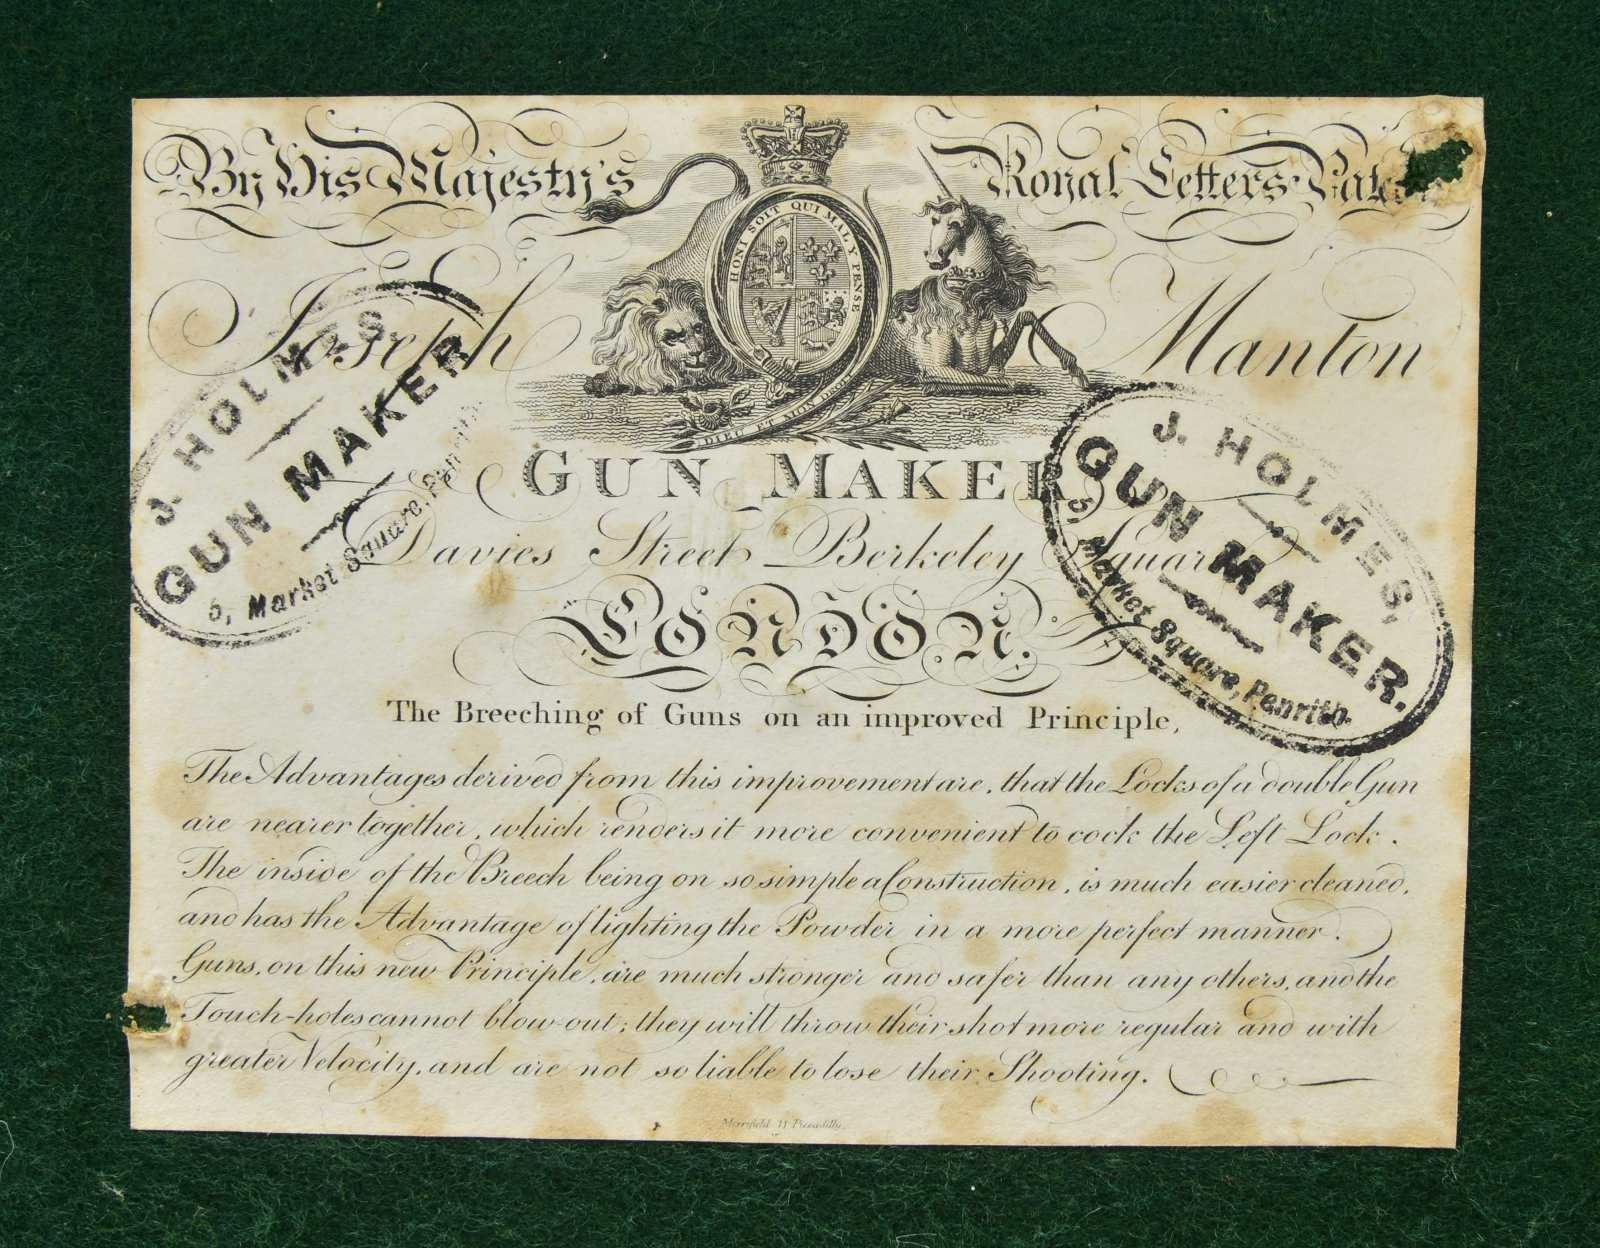 By His Majesty's Royal Letters
HONI SOIT QUI MAL Y PENSE
DIEU ET MON DROIT
Joseph Manton
GUN MAKER
Davies Street Berkeley Square
LONDON.
J. HOLMES,
GUN MAKER
5, Market Square, Penrith
J. HOLMES,
GUN MAKER.
5, Market Square, Penrith.
The Breeching of Guns on an improved Principle,
The Advantages derived from this improvement are, that the Locks of a double Gun
are nearer together, which renders it more convenient to cock the Left Lock.
The inside of the Breech being on so simple a Construction, is much easier cleaned,
and has the Advantage of lighting the Powder in a more perfect manner.
Guns, on this new Principle, are much stronger and safer than any others, and the
Touch-holes cannot blow-out; they will throw their shot more regular and with
greater Velocity, and are not so liable to lose their Shooting.
Merrifield 11 Piccadilly.